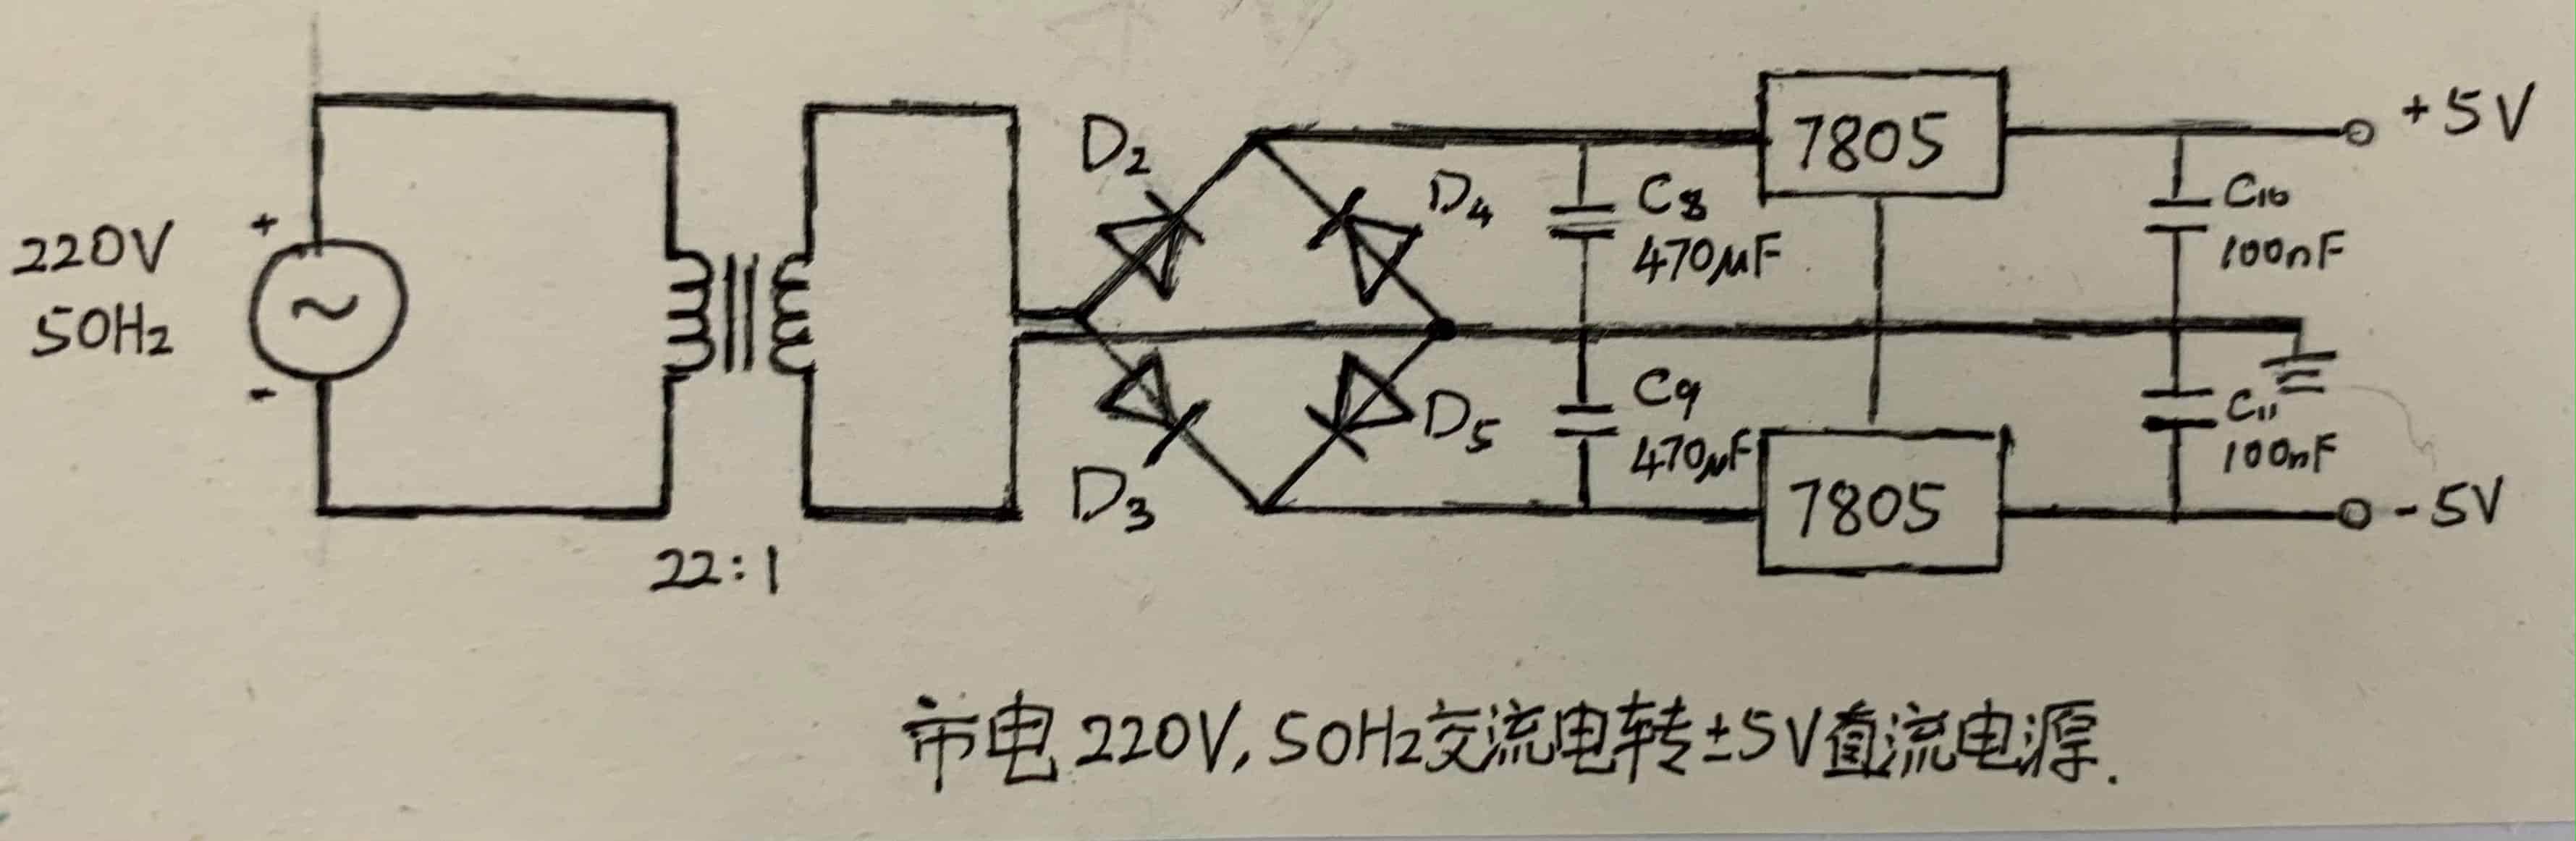 220V
50Hz
+
-
22:1
D2
D3
D4
D5
C8
470μF
C9
470μF
7805
7805
C10
100nF
C11
100nF
+5V
-5V
市电220V,50Hz交流电转±5V直流电源.